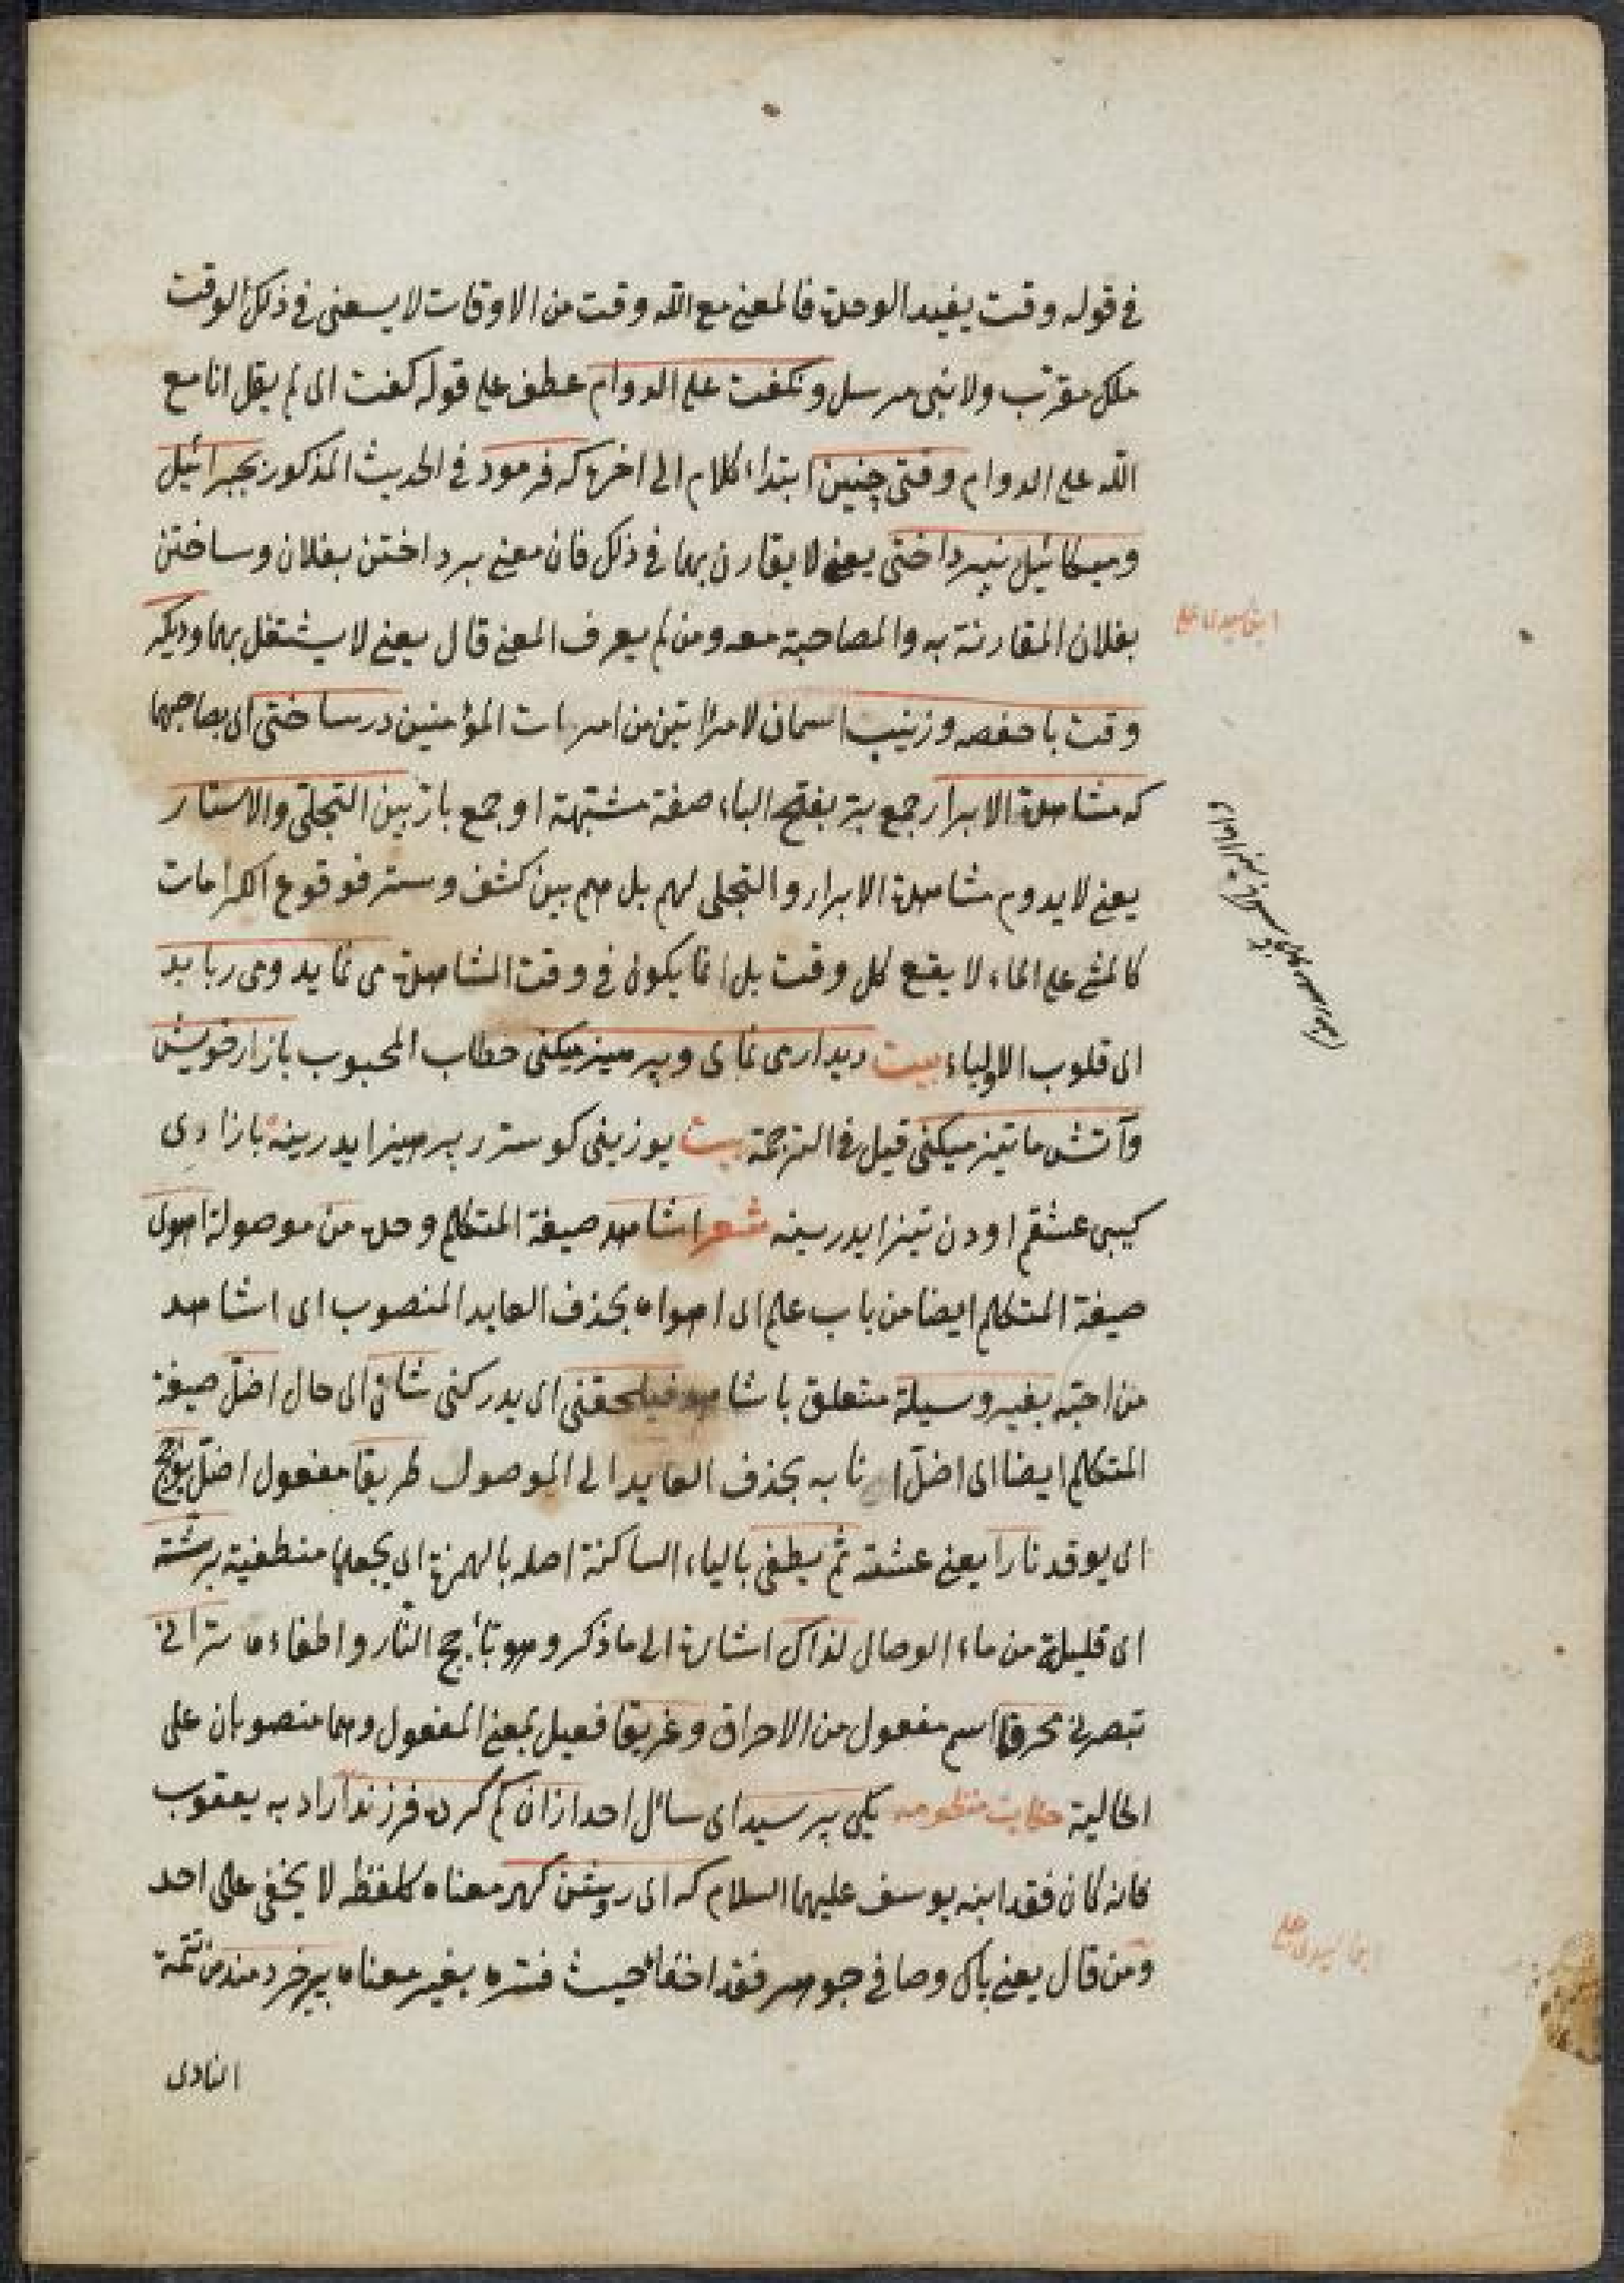 في قوله وقت يفيد الوحدة فالمعنى مع الله وقت من الاوقات لا يسعنى فى ذلك الوقت
ملك مقرّب ولا نبى مرسل ونكفت على الدوام عطف على قوله كفت اى لم يقل انا مع
الله على الدوام وقتى چنين ابتداء كلام الى اخره كه فرمود فى الحديث المذكور بجبرائيل
وميكائيل نپرداختى يعنى لا يقارن بهما فى ذلك فان معنى پرداختن بفلان وساختن
بفلان المقارنة به والمصاحبة معه ومن لم يعرف المعنى قال يعنى لا يشتغل بهما وديكر
وقت با حفصه وزينب اسمان لامرأتين من امهات المؤمنين درساختى اى يصاحبهما
كه مشاهدة الابرار جمع برّ بفتح الباء صفة مشبّهة او جمع بارّ بين التجلّى والاستتار
يعنى لا يدوم مشاهدة الابرار والتجلى لهم بل هم بين كشف وستر فوقوع الكرامات
كالمشى على الماء لا يقع كل وقت بل انما يكون فى وقت المشاهدة مى نمايد ومى ربايد
اى قلوب الاولياء بيت ديدار مى نماى وپرهيز ميكنى خطاب المحبوب بازار خويش
وآتش ما تيز ميكنى قيل فى الترجمة بيت يوزينى كوسترر پرهيز ايدرينه بازادى
كيبى عشقم اودن تيز ايدرسينه شعر اشاهد صيغة المتكلم وحده من موصولة اهوى
صيغة المتكلم ايضا من باب علم اى اهواه بحذف العايد المنصوب اى اشاهد
من احبّه بغير وسيلة متعلق باشاهد فيلحقنى اى يدركنى شان اى حال اضلّ صيغة
المتكلم ايضا اى اضلّ انا به بحذف العايد الى الموصول طريقا مفعول اضلّ يؤجّج
اى يوقد نارا يعنى عشقه ثم يطفى بالياء الساكنة اصله بالهمزة اى يجعلها منطفية برشّة
اى قليلة من ماء الوصال لذاك اشارة الى ما ذكر وهو تأجج النّار واطفاءه ترانى
تبصرنى محرقا اسم مفعول من الاحراق وغريقا فعيل بمعنى المفعول وهما منصوبان على
الحالية حكايت منظومه يكى پرسيد اى سائل احد ازان كم كرده فرزند اراد به يعقوب
فانه كان فقد ابنه يوسف عليهما السلام كه اى روشن كهر معناه كلفظه لا يخفى على احد
ومن قال يعنى پاك وصافى جوهر فقد اخفاه حيث فسّره بغير معناه پير خردمند من تتمة
النادى